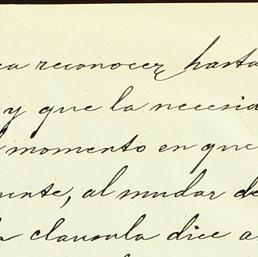 ra reconocer, hasta
y que la necesid
momento en que
mente, al mudar de
la clausula dice a